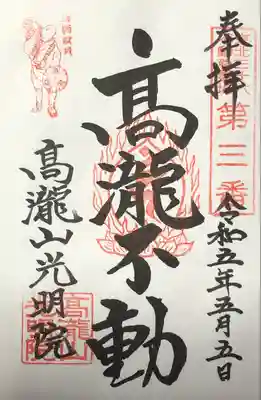 奉拝
第三番
令和五年五月五日
髙瀧不動
髙瀧山光明院